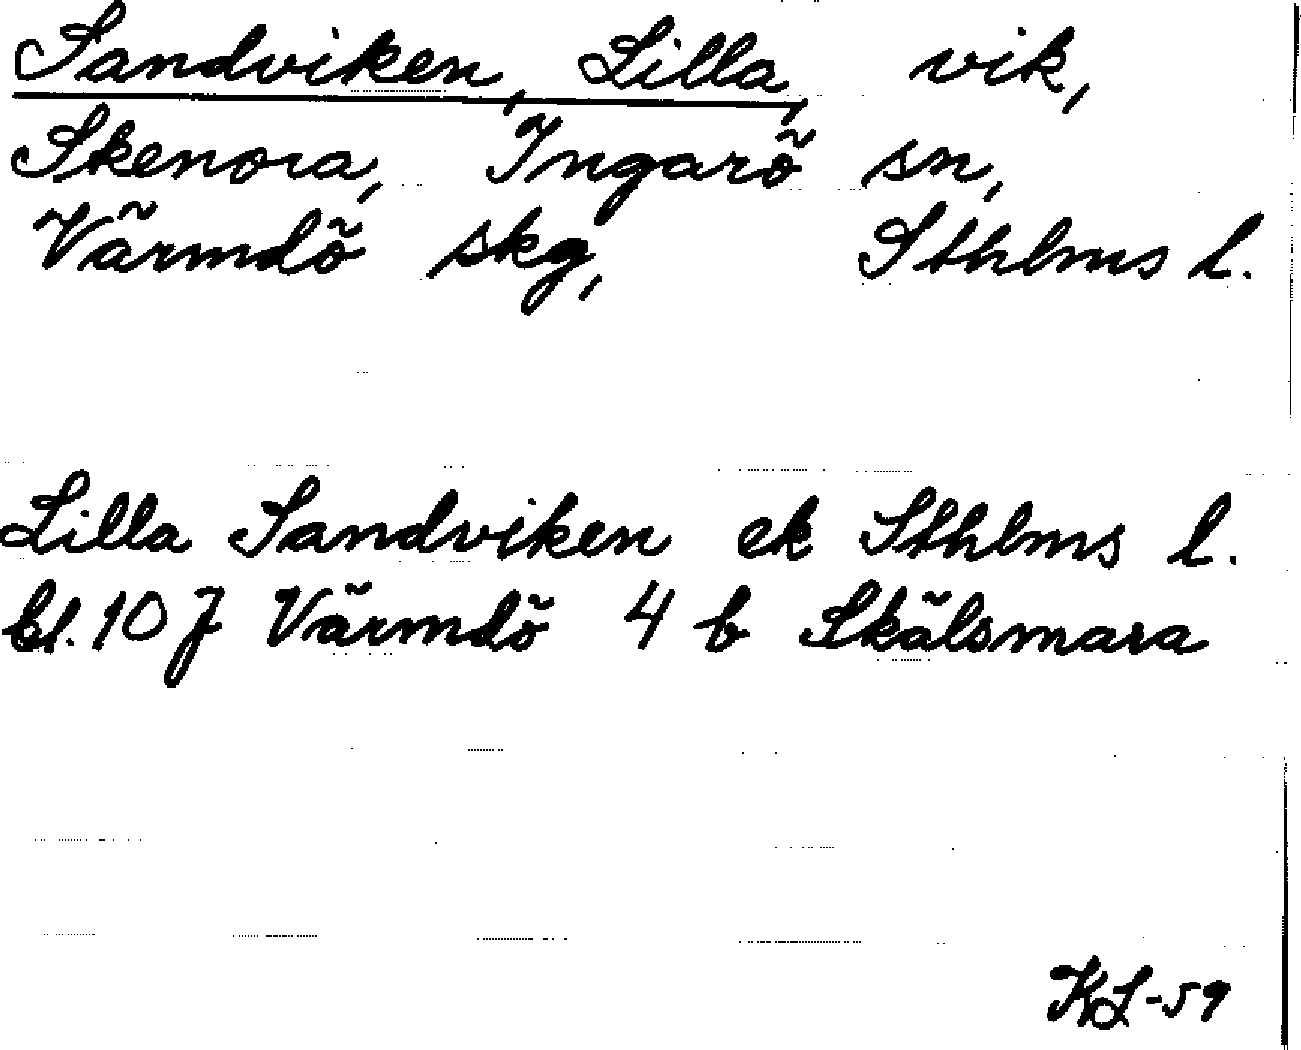 Sandviken, Lilla, vik,
Skenora, Ingarö sn,
Värmdö skg, Sthlms l.
Lilla Sandviken ek Sthlms l.
bl. 10 J Värmdö 4 b Skälsmara
KL-59